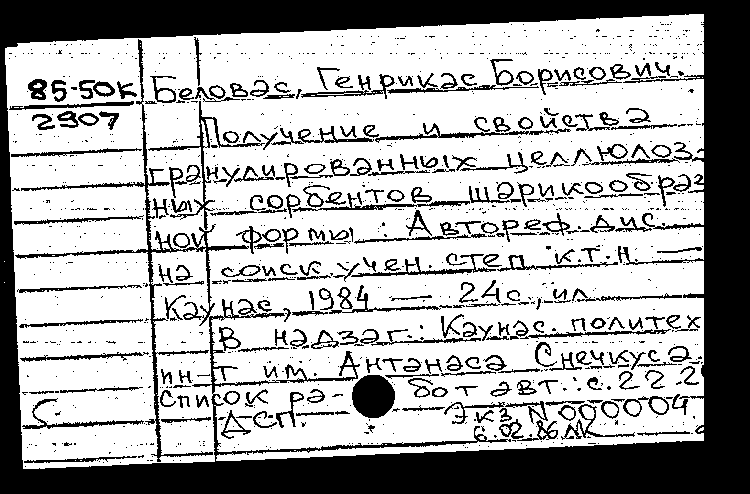 85-50К Беловас, Генрикас Борисович.
2907
Получение и свойства
гранулированных целлюлоз-
ных сорбентов шарикообраз
ной формы : Автореф. дис.
на соиск. учен. степ к.т.н. —
Каунас, 1984 — 24с., ил
В надзаг.: Каунас. политех
ин-т им. Антанаса Снечкуса.
Список ра- бот авт.: с. 22.2
ДСП. Экз N 000004.
6.02.86